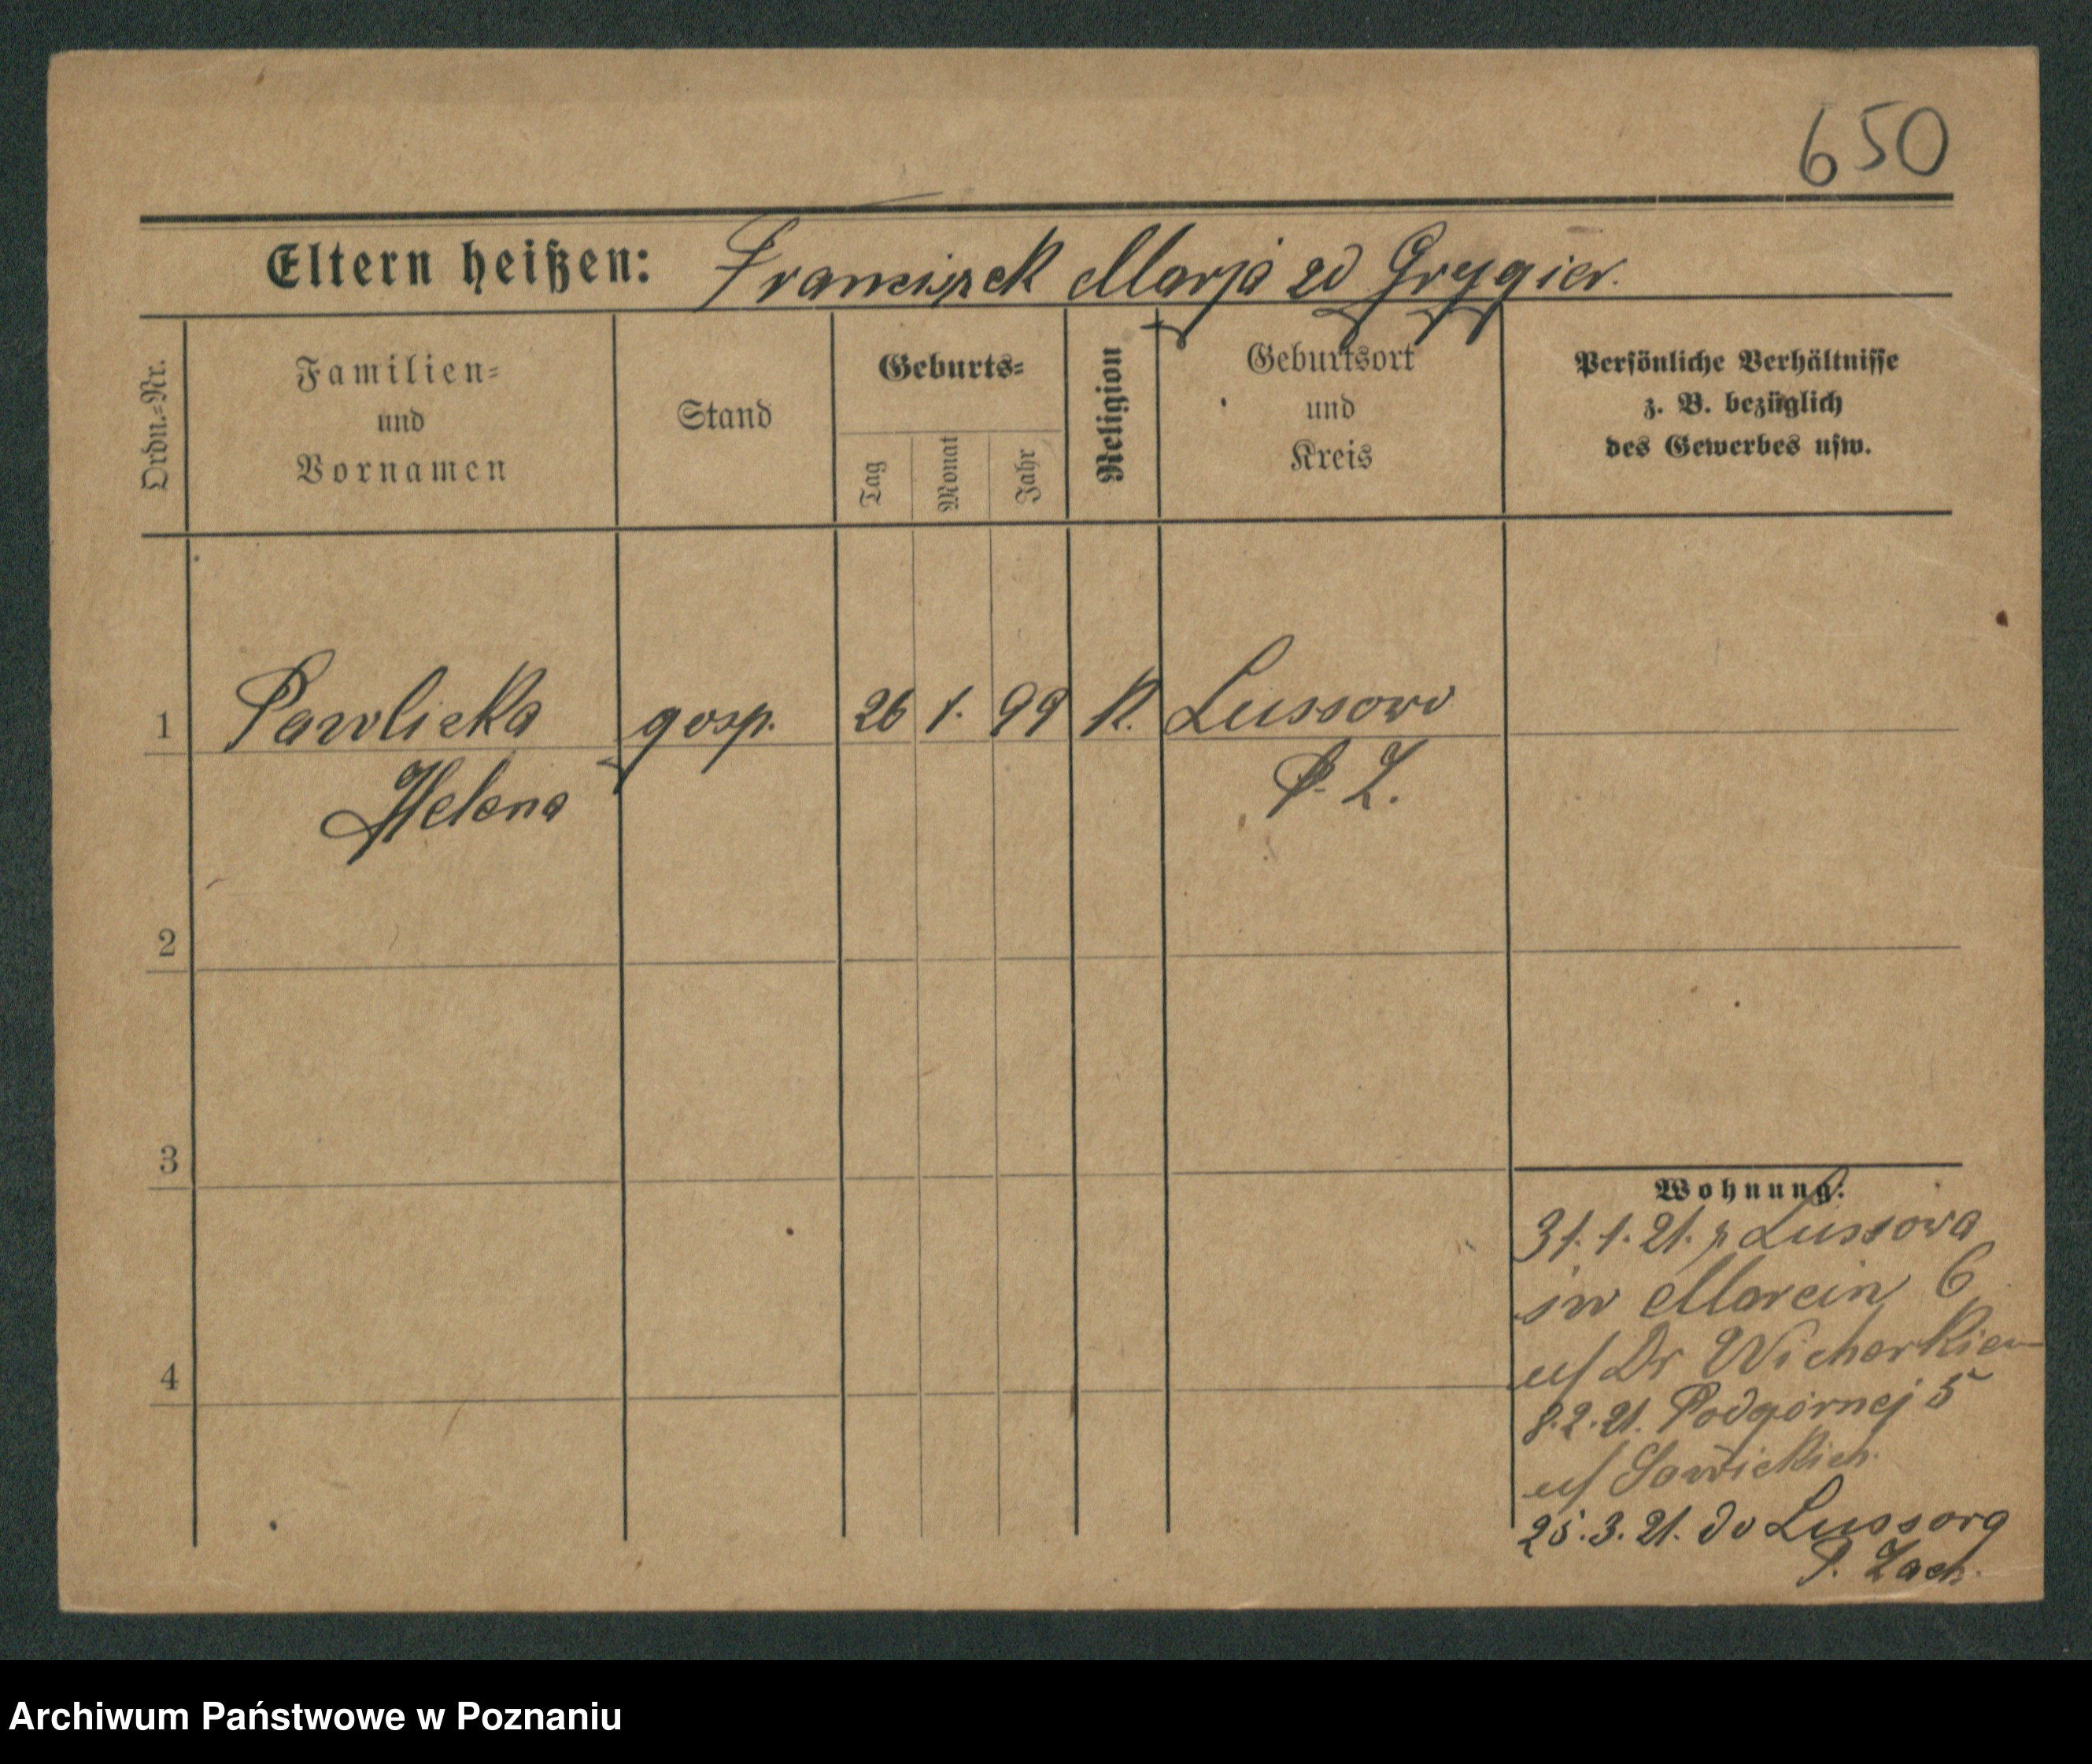 650
Eltern heißen: Franciszek Marja zd Grygier.
Ordn.=Nr.
Familien=
und
Vornamen
Stand
Geburts=
Tag
Monat
Jahr
Religion
Geburtsort
und
Kreis
Persönliche Verhältnisse
z. B. bezüglich
des Gewerbes usw.
1 Pawlicka gosp. 26 1. 99 K. Lussowo
Helena P. Z.
2
3
4
Wohnung:
31. 1. 21. z Lussowa
św Marcin 6
u/ Dr Wicherkiew
8.2.21. Podgórnej 5
u/ Sawickich.
25. 3. 21. do Lussowa
P. Zach.
Archiwum Państwowe w Poznaniu